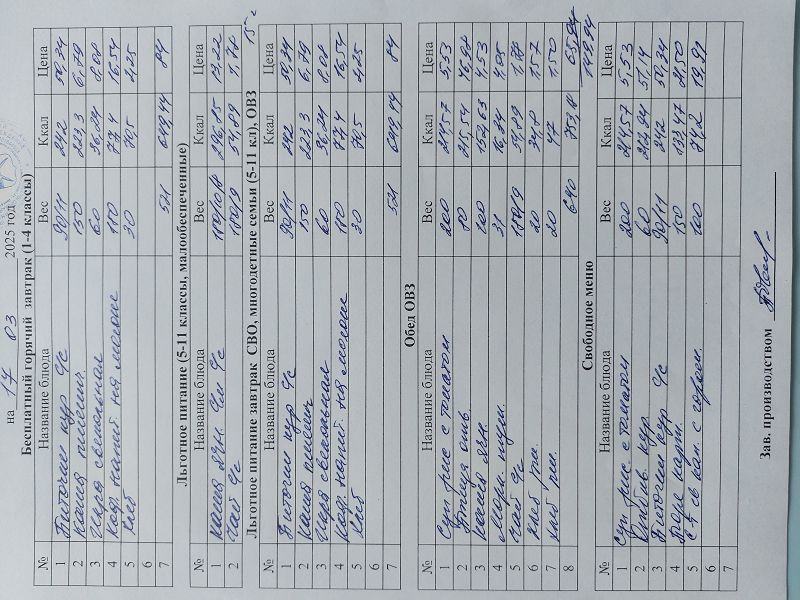 на 17 03 2025 год
Бесплатный горячий завтрак (1-4 классы)
№ Название блюда Вес Ккал Цена
1 Биточки кур с/с 90/11 242 50,34
2 Каша пшенич. 150 223,3 6,79
3 Икра свекольная 60 56,24 8,08
4 Коф. напит на молоке 180 77,4 16,54
5 Хлеб 30 70,5 2,25
6
7 521 84
Льготное питание (5-11 классы, малообеспеченные)
№ Название блюда Вес Ккал Цена
1 Каша 180/10/8 296,85 13,22
2 Чай с/с 180/9 34,89 1,78
15
Льготное питание завтрак СВО, многодетные семьи (5-11 кл), ОВЗ
№ Название блюда Вес Ккал Цена
1 Биточки кур с/с 90/11 242 50,34
2 Каша пшенич 150 223,3 6,79
3 Икра свекольная 60 56,24 8,08
4 Коф. напит. на молоке 180 77,4 16,54
5 Хлеб 30 70,5 2,25
6
7 521 84
Обед ОВЗ
№ Название блюда Вес Ккал Цена
1 Суп рис с томатом 200 214,57 5,53
2 Птица отв 80 215,54
3 Каша 100 152,63 4,53
4 31 16,84
5 Чай с/с 180/9 34,89 1,78
6 Хлеб рж. 20 34,8 1,57
7 Хлеб 20 47 1,50
8 640 65,94
149,94
Свободное меню
№ Название блюда Вес Ккал Цена
1 Суп рис с томатом 200 214,57 5,53
2 кур. 60 51,14
3 Биточки кур с/с 90/11 242 50,34
4 Пюре карт. 150 133,47 21,50
5 100 74,2 19,91
6
7
Зав. производством